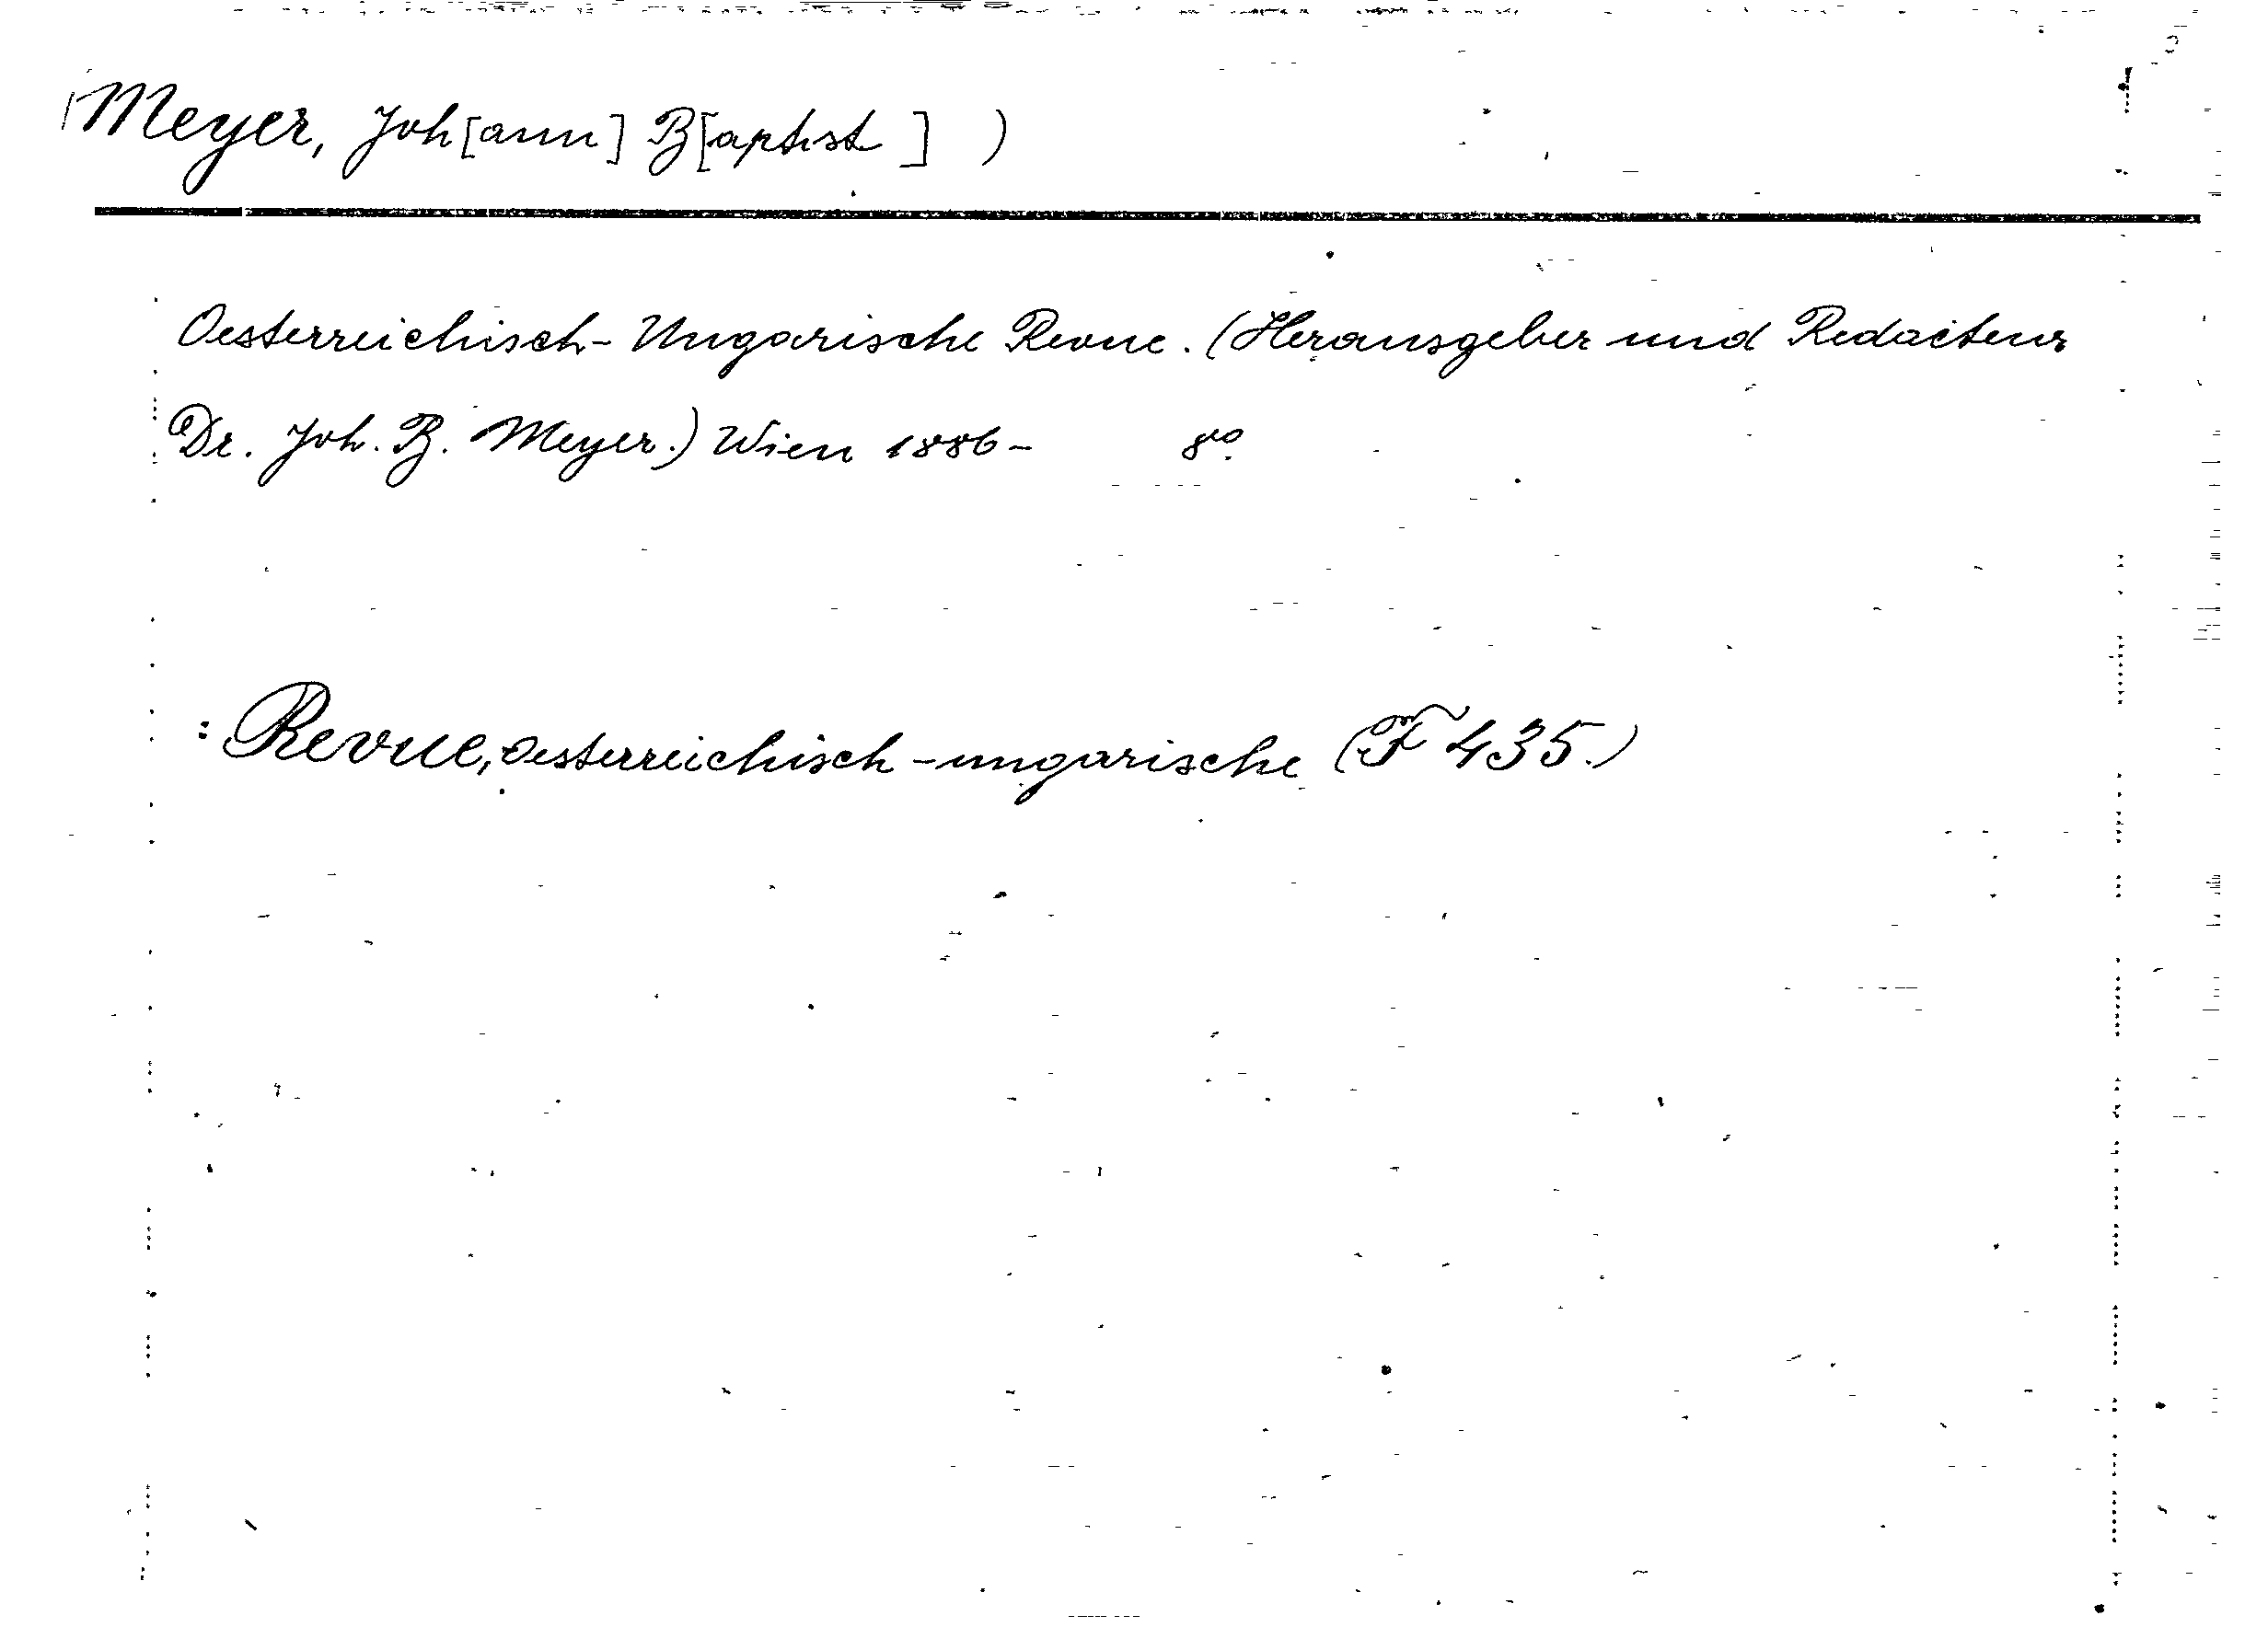 (Meyer, Joh[ann] B[aptist] )
Oesterreichisch-Ungarische Revue. (Herausgeber und Redacteur
Dr. Joh. B. Meyer.) Wien 1886- 8vo.
: Revue, oesterreichisch-ungarische (F 435.)